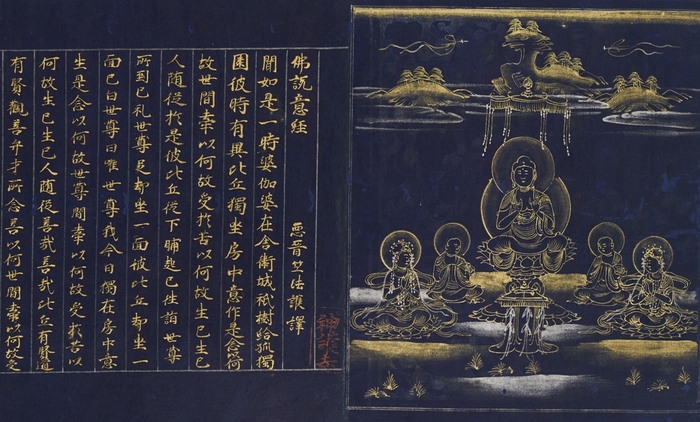 佛說意經 西晉竺法護譯
聞如是一時婆伽婆在舍衛城祇樹給孤獨
園彼時有異比丘獨坐房中意作是念以何
故世間牽以何故受於苦以何故生生已
人随從於是彼比丘從下晡起已往詣世尊
所到已礼世尊足却坐一面彼比丘却坐一
面已白世尊曰唯世尊我今日獨在房中意
坐是念以何故世尊間牽以何故受於苦以
何故生已生已人随從善哉善哉比丘有賢道
有賢觀善弁才所念善以何世間牽以何故受
神護寺